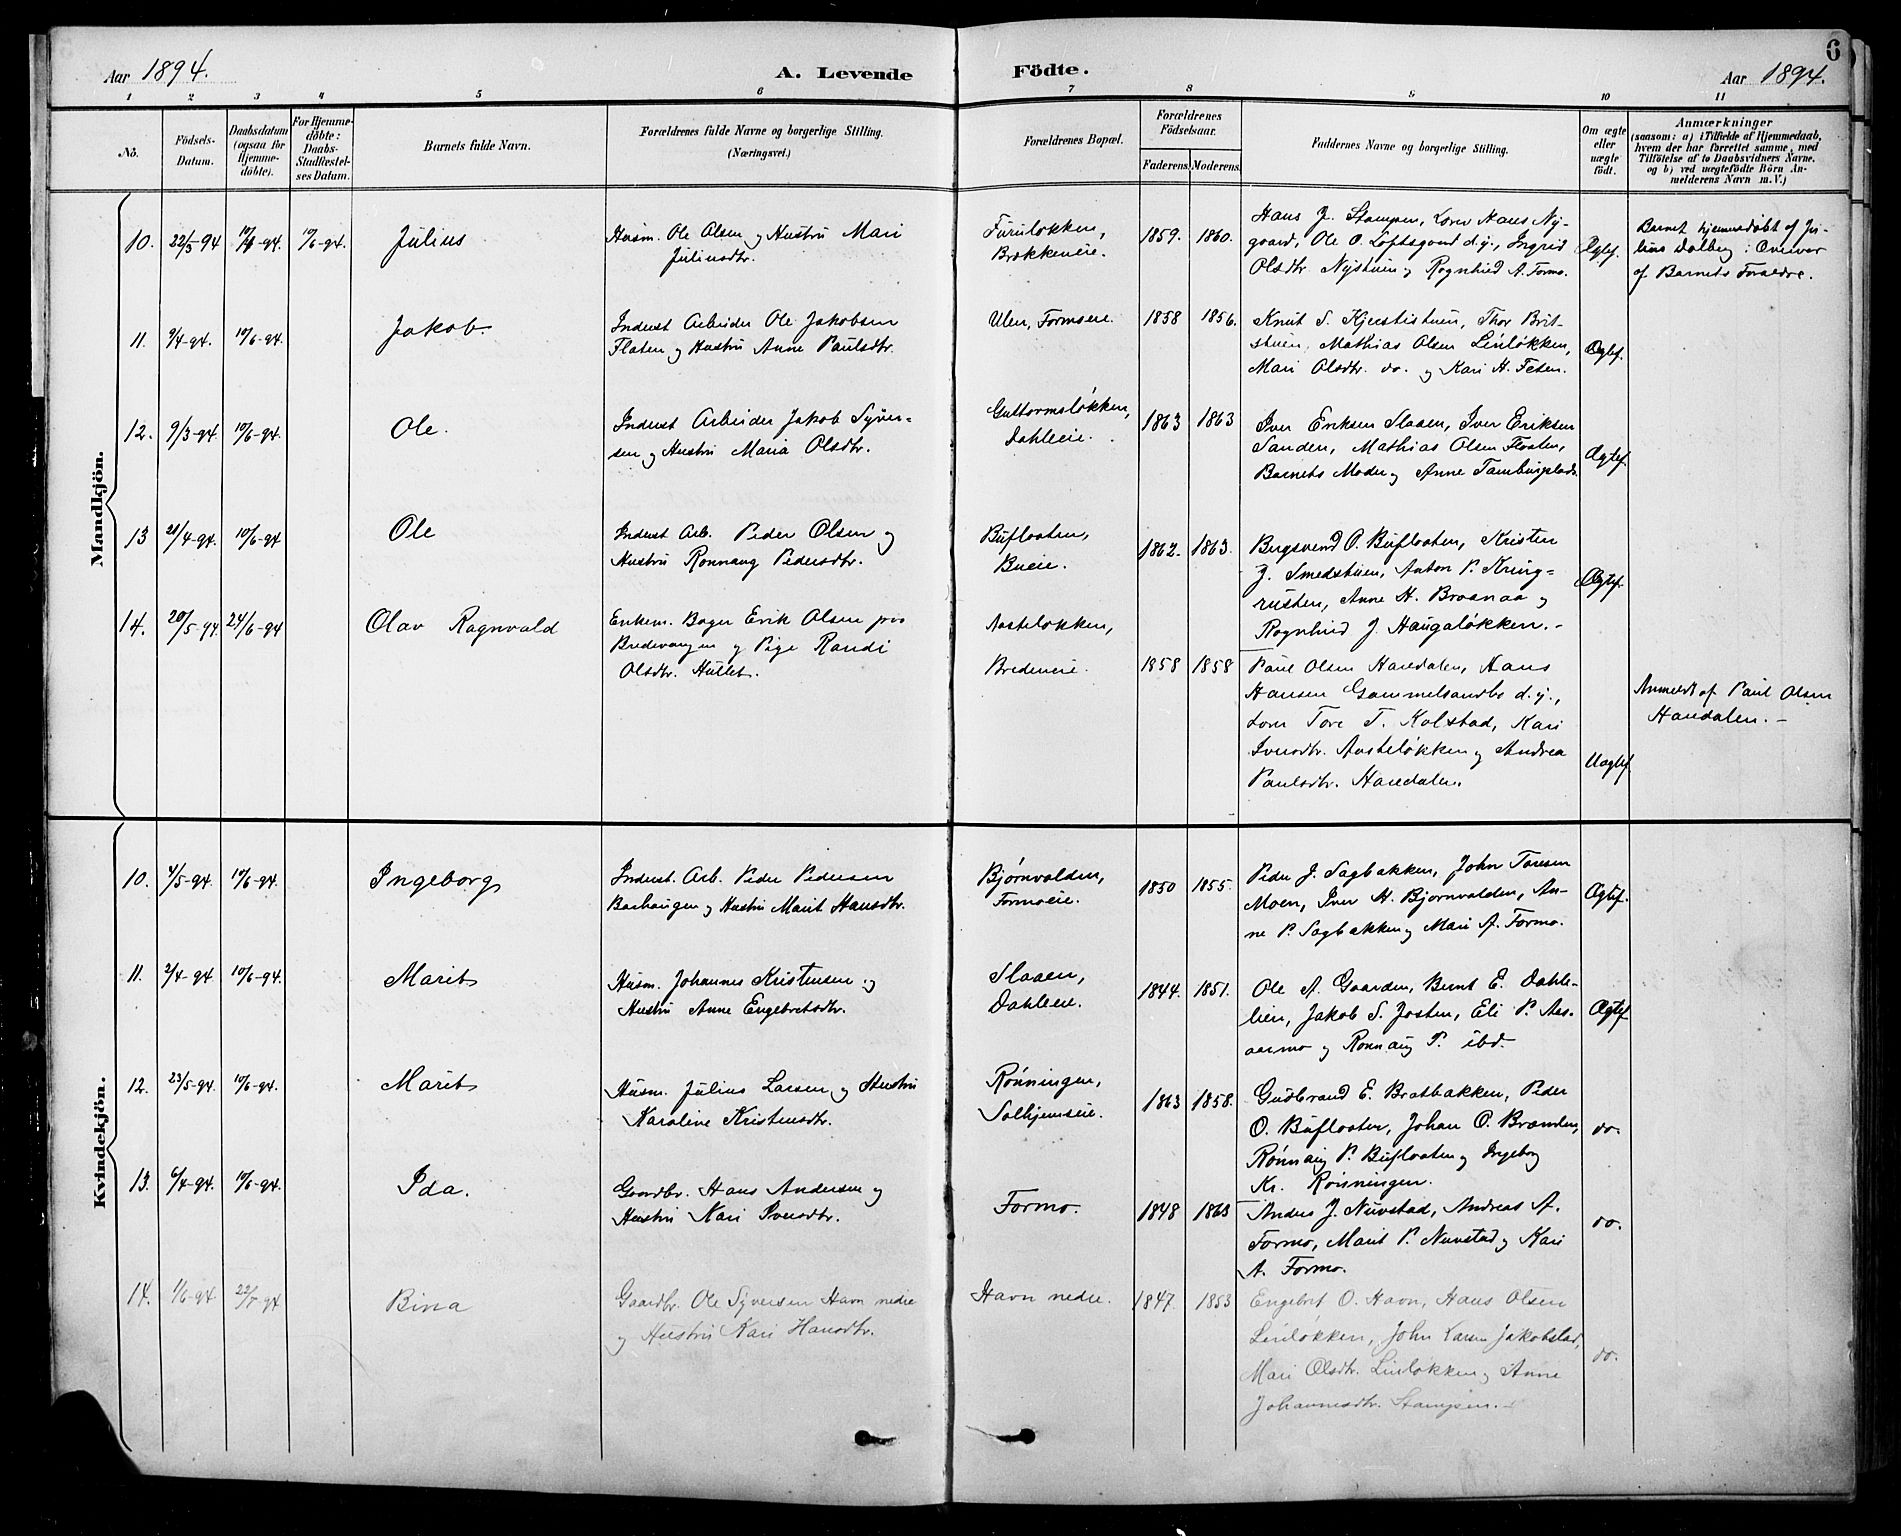 6
Aar 1894.
A. Levende Födte.
Aar 1894.
1 2 3 4 5 6 7 8 9 10 11
No.
Födsels-
Datum.
Daabsdatum
(ogsaa for
Hjemme-
døbte).
For Hjemme-
døbte:
Daabs-
Stadfæstel-
ses Datum.
Barnets fulde Navn.
Forældrenes fulde Navne og borgerlige Stilling.
(Næringsvei.)
Forældrenes Bopæl.
Forældrenes
Födselsaar.
Faderens. Moderens.
Faddernes Navne og borgerlige Stilling.
Om ægte
eller
uægte
født.
Anmærkninger
(saasom: a) i Tilfælde af Hjemmedaab,
hvem der har forrettet samme, med
Tilföielse af to Daabsvidners Navne,
og b) ved uægtefödte Börn An-
melderens Navn m. V.)
Mandkjön.
10. 22/5-94 10/6-94. Julius
Husm. Ole Olsen og Hustru Mari
Julinsdtr.
Furuløkken,
Brækkeneie.
1859. 1860.
Hans J. Stampen, Hans Ny-
gaard, Ole O. Loftsgaard d.y., Ingrid
Olsdtr. Nystuen og Rognhild A. Formo.
Ægtef.
Barnet hjemmedøbt af Ju-
lius Dalberg i Overvær
af Barnets Forældre.
11. 9/4-94. 10/6-94. Jakob.
Inderst Arbeider Ole Jakobsen
Flaten og Hustru Anne Paulsdtr.
Ulen, Formoeie. 1858 1856.
Knut S. Kjerstistuen, Thor Brit-
stuen, Mathias Olsen Linløkken,
Mari Olsdtr. do. og Kari H. Feten.
Ægtef.
12. 9/3-94. 10/6-94. Ole.
Inderst Arbeider Jakob Syver-
sen og Hustru Maria Olsdtr.
Guttormsløkken,
Dahleeie.
1863 1863
Iver Eriksen Slaaen, Iver Eriksen
Sanden, Mathias Olsen Floaten,
Barnets Moder og Anne Tamburplads.
Ægtef.
13 21/4-94. 10/6-94 Ole
Inderst Arb. Peder Olsen og
Hustru Ronnaug Pedersdtr.
Bufloaten,
Bueie.
1862. 1863.
Bergsvend O. Bufloaten, Kristen
J. Smedstuen, Anton P. Kring-
rusten, Anne H. Braanaa og
Rognhild J. Haugaløkken.-
Ægtef.
14. 20/5-94. 24/6-94 Olav Ragnvald
Enkem. Bager Erik Olsen paa
Bredevangen og Pige Randi
Olsdtr. Hullet.
Aasteløkken,
Bredeneie.
1858 1858
Paul Olsen Haredalen, Hans
Hansen Gammelsandbo d.y.,
Tore T. Kolstad, Kari
Iversdtr. Aasteløkken og Andrea
Paulsdtr. Haredalen.
Uægtef.
Anmeldt af Paul Olsen
Haredalen.-
Kvindekjön.
10. 4/5-94. 10/6-94. Ingeborg
Inderst. Arb. Peder Pedersen
Bakhaugen og Hustru Marit Hansdtr.
Bjørnvolden,
Formoeie.
1850 1855.
Peder J. Sagbakken, John Toresen
Moen, Iver H. Bjørnvolden, An-
ne P. Sagbakken og Mari A. Formo.
Ægtef.
11. 2/4-94 10/6-94. Marit
Husm. Johannes Kristensen og
Hustru Anne Engebretsdtr.
Slaaen,
Dahleeie.
1844. 1851.
Ole A. Gaarden, Bernt E. Dahle-
lien, Jakob S. Josten, Eli P. Aas-
aarmo og Ronnaug P. ibd.
Ægtef.
12. 23/5-94. 10/6-94. Marit
Husm. Julius Larsen og Hustru
Karoline Kristensdtr.
Rønningen,
Solhjemseie.
1863 1858.
Gudbrand E. Bratbakken, Peder
O. Bufloaten, Johan O. Brænden,
Rønnaug P. Bufloaten og Ingeborg
Kr. Rønningen.
do.
13. 6/4-94. 10/6-94. Ida.
Gaardbr. Hans Andersen og
Hustru Kari Iversdtr.
Formo. 1848 1863
Anders J. Nuvstad, Andreas A.
Formo, Marit P. Nuvstad og Kari
A. Formo.
do.
14. 1/6-94 22/7-94 Bina
Gaardbr. Ole Syversen Havn nedre
og Hustru Kari Hansdtr.
Havn nedre. 1847. 1853
Engebret O. Havn, Hans Olsen
Linløkken, John Larsen Jakobstad,
Mari Olsdtr. Linløkken og Anne
Johannesdtr. Stampen.-
do.